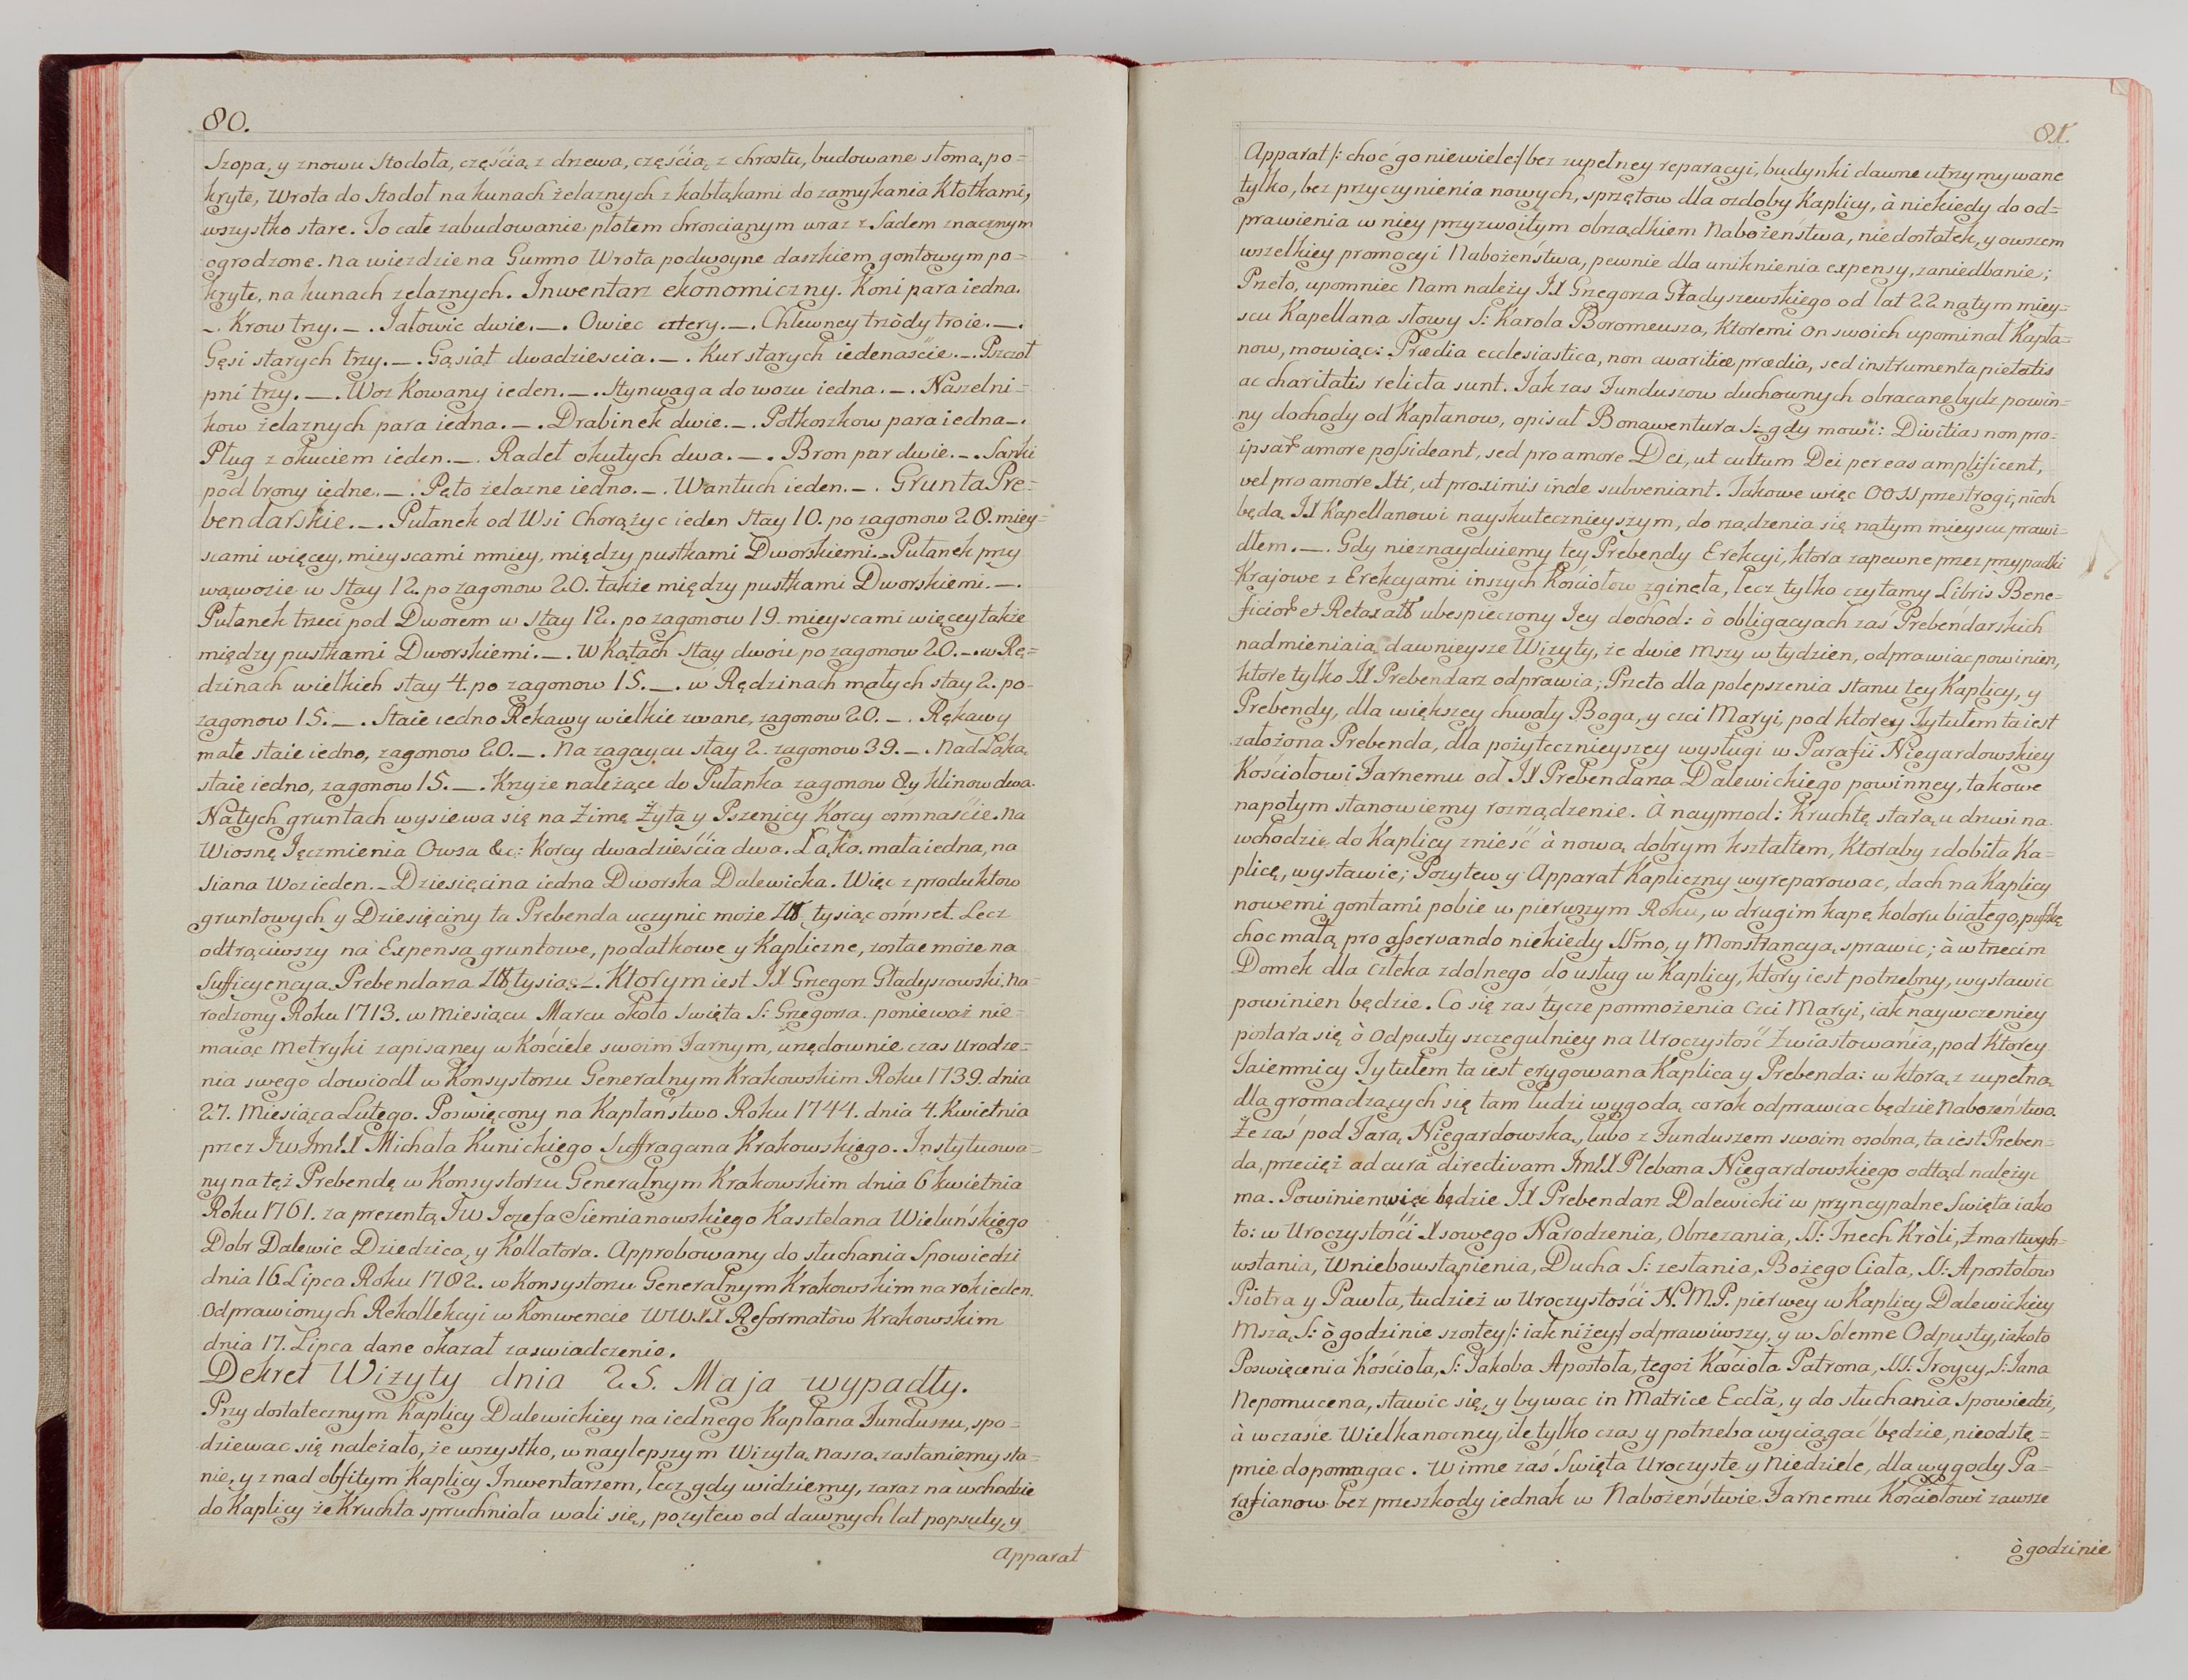 80.
Szopa, y znowu Stodoła, częścią z drzewa, częścią z chrostu, budowane słomą, po=
kryte, Wrota do Stodoł na kunach żelaznych z kabłąkami do zamykania Kłotkami,
wszystko stare. To całe zabudowanie płotem chroscianym wraz z Sadem znacznym
ogrodzone. Na wiezdzie na Gumno Wrota podwoyne daszkiem gontowym po=
kryte, na kunach zelaznych. Inwentarz ekonomiczny. Koni para iedna.
_. Krow trzy. _. Jałowic dwie. _. Owiec cztery. _. Chlewney trzòdy troie. _.
Gęsi starych trzy. _. Gąsiąt dwadziescia. _. Kur starych iedenaście. _. Pszczoł
pni trzy. _. Woz Kowany ieden. _. Stynwaga do wozu iedna. _. Naszelni=
kow żelaznych para iedna. _. Drabinek dwie. _. Połkoszkow para iedna _.
Pług z okuciem ieden. _. Radeł okutych dwa. _. Bron par dwie. _. Sanki
pod brony iędne. _. Pęto żelazne iedno. _. Wantuch ieden. _. Grunta Pre=
bendarskie. _. Pułanek od Wsi Chorążyc ieden Stay 10. po zagonow 28. miey=
scami więcey, mieyscami mniey, między pustkami Dworskiemi. _ Pułanek przy
wąwozie w Stay 12. po zagonow 20. także między pustkami Dworskiemi. _.
Pułanek trzeci pod Dworem w Stay 12. po zagonow 19. mieyscami więcey także
między pustkami Dworskiemi. _. W Kątach Stay dwoie po zagonow 20. _. w Rę=
dzinach wielkich stay 4. po zagonow 15. _. w Rędzinach małych stay 2. po=
zagonow 15. _. Staie iedno Rękawy wielkie zwane, zagonow 20. _. Rękawy
małe staie iedno, zagonow 20. _. Na zagaycu stay 2. zagonow 39. _. Nad Łąką
staie iedno, zagonow 15. _. Krzyże należące do Pułanka zagonow 8 y klinow dwa.
Na tych gruntach wysiewa się na Zimę Żyta y Pszenicy Korcy ośmnaście. Na
Wiosnę Jęczmienia Owsa &c: Korcy dwadzieścia dwa. Łąka mała iedna, na
Siana Woz ieden. _ Dziesięcina iedna Dworska Dalewicka. Więc z produktow
gruntowych y Dziesięciny ta Prebenda uczynic może Złł tysiąc ośmset. Lecz
odtrąciwszy na Expensa gruntowe, podatkowe y Kapliczne, zostac może na
Sufficyencyą Prebendarza Złł tysiąc. _. Ktorym iest JX Grzegorz Gładyszowski. Na=
rodzony Roku 1713. w Miesiącu Marcu około Swięta S: Grzegorza. poniewaz nie=
maiąc Metryki zapisaney w Kościele swoim Farnym, urzędownie czas Urodze=
nia swego dowiodł w Konsystorzu Generalnym Krakowskim Roku 1739. dnia
27. Miesiąca Lutego. Poswięcony na Kapłaństwo Roku 1744. dnia 4. Kwietnia
przez JW JmX Michała Kunickiego Suffragana Krakowskiego. Instytuowa=
ny na też Prebendę w Konsystorzu Generalnym Krakowskim dnia 6 kwietnia
Roku 1761. za prezentą JW Jozefa Siemianowskiego Kasztelana Wieluńskiego
Dobr Dalewic Dziedzica, y Kollatora. Approbowany do słuchania Spowiedzi
dnia 16. Lipca Roku 1782. w Konsystorzu Generalnym Krakowskim na rok ieden.
Odprawionych Rekollekcyi w Konwencie WWXX Reformatow Krakowskim
dnia 17. Lipca dane okazał zaswiadczenie.
Dekret Wizyty dnia 25. Maja wypadły.
Przy dostatecznym Kaplicy Dalewickiey na iednego Kapłana Funduszu, spo=
dziewac się należało, że wszystko, w naylepszym Wizyta Nasza zastaniemy sta=
nie, y z nad obfitym Kaplicy Inwentarzem, lecz gdy widziemy, zaraz na wchodzie
do Kaplicy że Kruchta spruchniała wali się, pozytew od dawnych lat popsuty, y
Apparat
81.
Apparat /: choć go niewiele :/ bez zupełney reparacyi, budynki dawne utrzymywane
tylko, bez przyczynienia nowych, sprzętow dla ozdoby Kaplicy, à niekiedy do od=
prawienia w niey przyzwoitym obrządkiem Nabożeństwa, niedostatek, y owszem
wszelkiey promocyi Nabożeństwa, pewnie dla uniknienia expensy, zaniedbanie;
Przeto, upomniec Nam należy JX Grzegorza Gładyszewskiego od lat 22 na tym miey=
scu Kapellana słowy S: Karola Boromeusza, Ktoremi on swoich upominał Kapła=
now, mowiąc: Prædia ecclesiastica, non avaritiæ prædia, sed instrumenta pietatis
ac charitatis relicta sunt. Jak zas Funduszow duchownych obracane bydz powin=
ny dochody od Kapłanow, opisał Bonawentura S: gdy mowi: Divitias non pro=
ipsar amore possideant, sed pro amore Dei, ut cultum Dei per eas amplificent,
vel pro amore Xti, ut proximis inde subveniant. Takowe więc OO SS przestrogi, nich
będą JX Kapellanowi nayskutecznieyszym, do rządzenia się na tym mieyscu prawi=
dłem. _. Gdy nieznayduiemy tey Prebendy Erekcyi, ktora zapewne przez przypadki
Krajowe z Erekcyami inszych Kościołow zgineła, lecz tylko czytamy Libris Bene=
ficior et Retaxat ubespieczony Jey dochod: ò obligacyach zaś Prebendarskich
nadmieniaią dawnieysze Wizyty, że dwie Mszy w tydzien, odprawiac powinien,
ktore tylko JX Prebendarz odprawia; Przeto dla polepszenia stanu tey Kaplicy, y
Prebendy, dla większey chwały Boga, y czci Maryi, pod ktorey Tytułem ta iest
założona Prebenda, dla pożytecznieyszey wysługi w Parafii Niegardowskiey
Kościołowi Farnemu od JX Prebendarza Dalewickiego powinney, takowe
napotym stanowiemy rozrządzenie. À nayprzod: Kruchtę starą u drzwi na
wchodzie do Kaplicy znieść à nową dobrym kształtem, Ktoraby zdobiła Ka=
plicę, wystawic; Pozytew y Apparat Kapliczny wyreparowac, dach na Kaplicy
nowemi gontami pobic w pierwszym Roku, w drugim kapę koloru białego, puszkę
choc małą pro asservando niekiedy SSmo, y Monstrancyą sprawic; à w trzecim
Domek dla człeka zdolnego do usług w Kaplicy, ktory iest potrzebny, wystawic
powinien będzie. Co się zaś tycze pomnożenia Czci Maryi, iak naywczesniey
postara się ò Odpusty szczegulniey na Uroczystość Zwiastowania, pod Ktorey
Taiemnicy Tytułem ta iest erygowana Kaplica y Prebenda: w ktorą z zupełną
dla gromadzących się tam ludzi wygodą co rok odprawiac będzie Nabożeństwo.
Że zaś pod Farą Niegardowską, lubo z Funduszem swoim osobna, ta iest Preben=
da, przecięż ad curã directivam JmX Plebana Niegardowskiego odtąd należyc
ma. Powinien więc będzie JX Prebendarz Dalewicki w pryncypalne Swięta iako
to: w Uroczystości Xsowego Narodzenia, Obrzezania, SS: Trzech Kròli, Zmartwych=
wstania, Wniebowstąpienia, Ducha S: zesłania, Bożego Ciała, SS: Apostołow
Piotra y Pawła, tudzież w Uroczystości N.M.P. pierwey w Kaplicy Dalewickiey
Mszą S: ò godzinie szostey /: iak niżey :/ odprawiwszy, y w Solenne Odpusty, iako to
Poswięcenia Kościoła, S: Jakoba Apostoła, tegoż Kościoła Patrona, SS: Troycy, S: Jana
Nepomucena, stawic się, y bywac in Matrice Eccla, y do słuchania Spowiedzi,
à w czasie Wielkanocney, ile tylko czas y potrzeba wyciągać będzie, nieodstę=
pnie dopomagac. W inne zaś Swięta Uroczyste y Niedziele, dla wygody Pa=
rafianow bez przeszkody iednak w Nabożeństwie Farnemu Kościołowi zawsze
ò godzinie